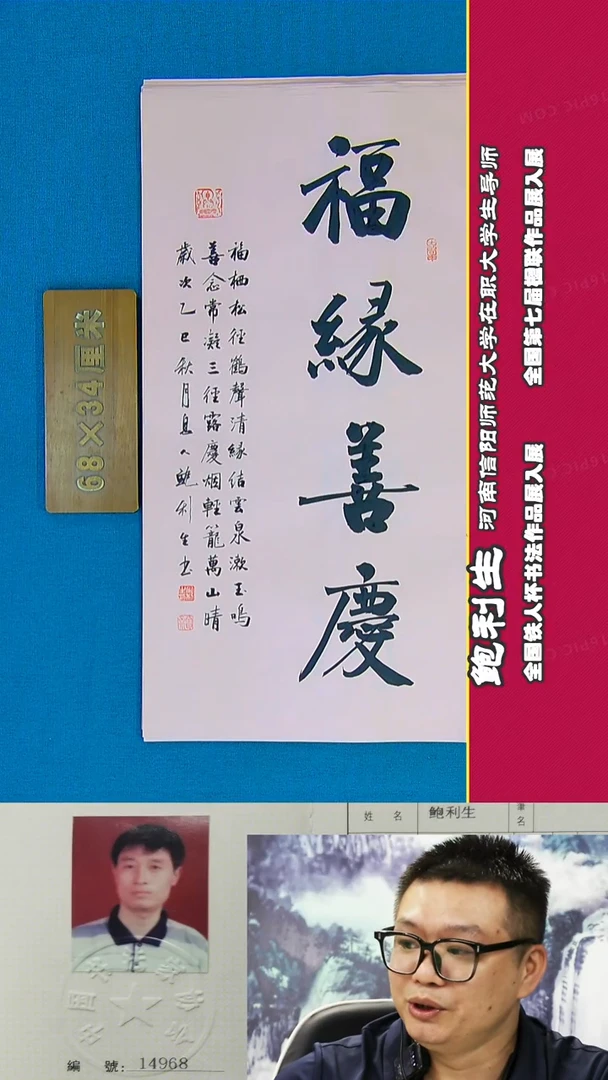 福緣善慶
福栖松徑鶴聲清緣結雲泉漱玉鳴
善念常凝三徑露慶烟輕籠萬山晴
歲次乙巳秋月 鲍利生书
68×34厘米
鲍利生 河南信阳师范大学在职大学生导师
全国铁人杯书法作品展入展 全国第七届楹联作品展入展
姓 名 鲍利生 筆名
編 號: 14968